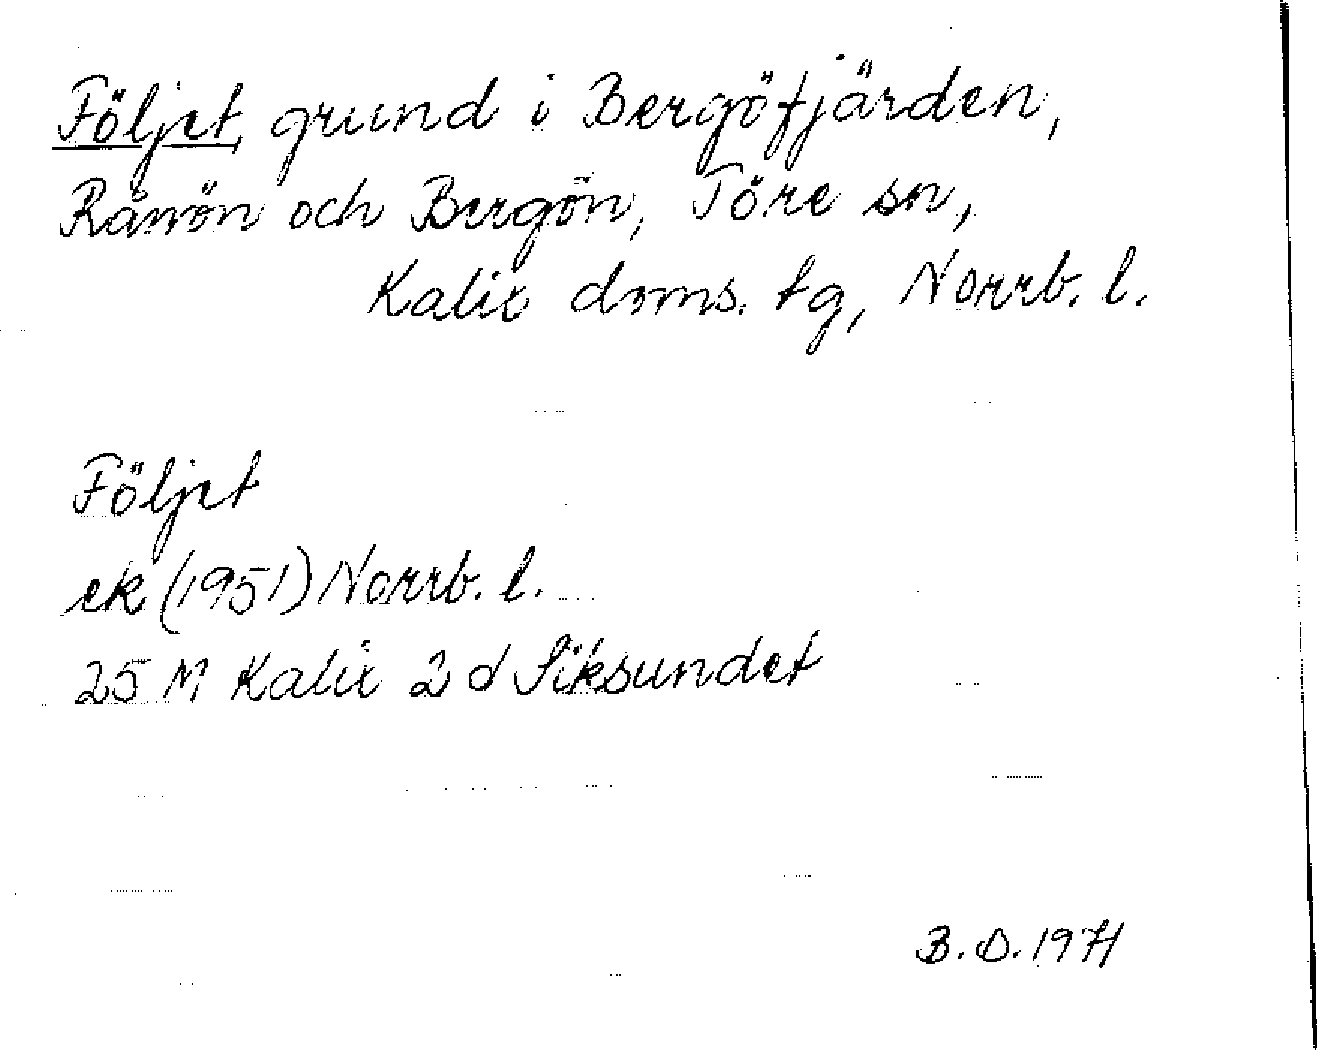 Följet, grund i Bergöfjärden,
Rånön och Bergön, Töre sn,
Kalix doms. tg, Norrb. l.
Följet
ek (1951) Norrb. l.
25 M Kalix 2 d Siksundet
B. D. 1971